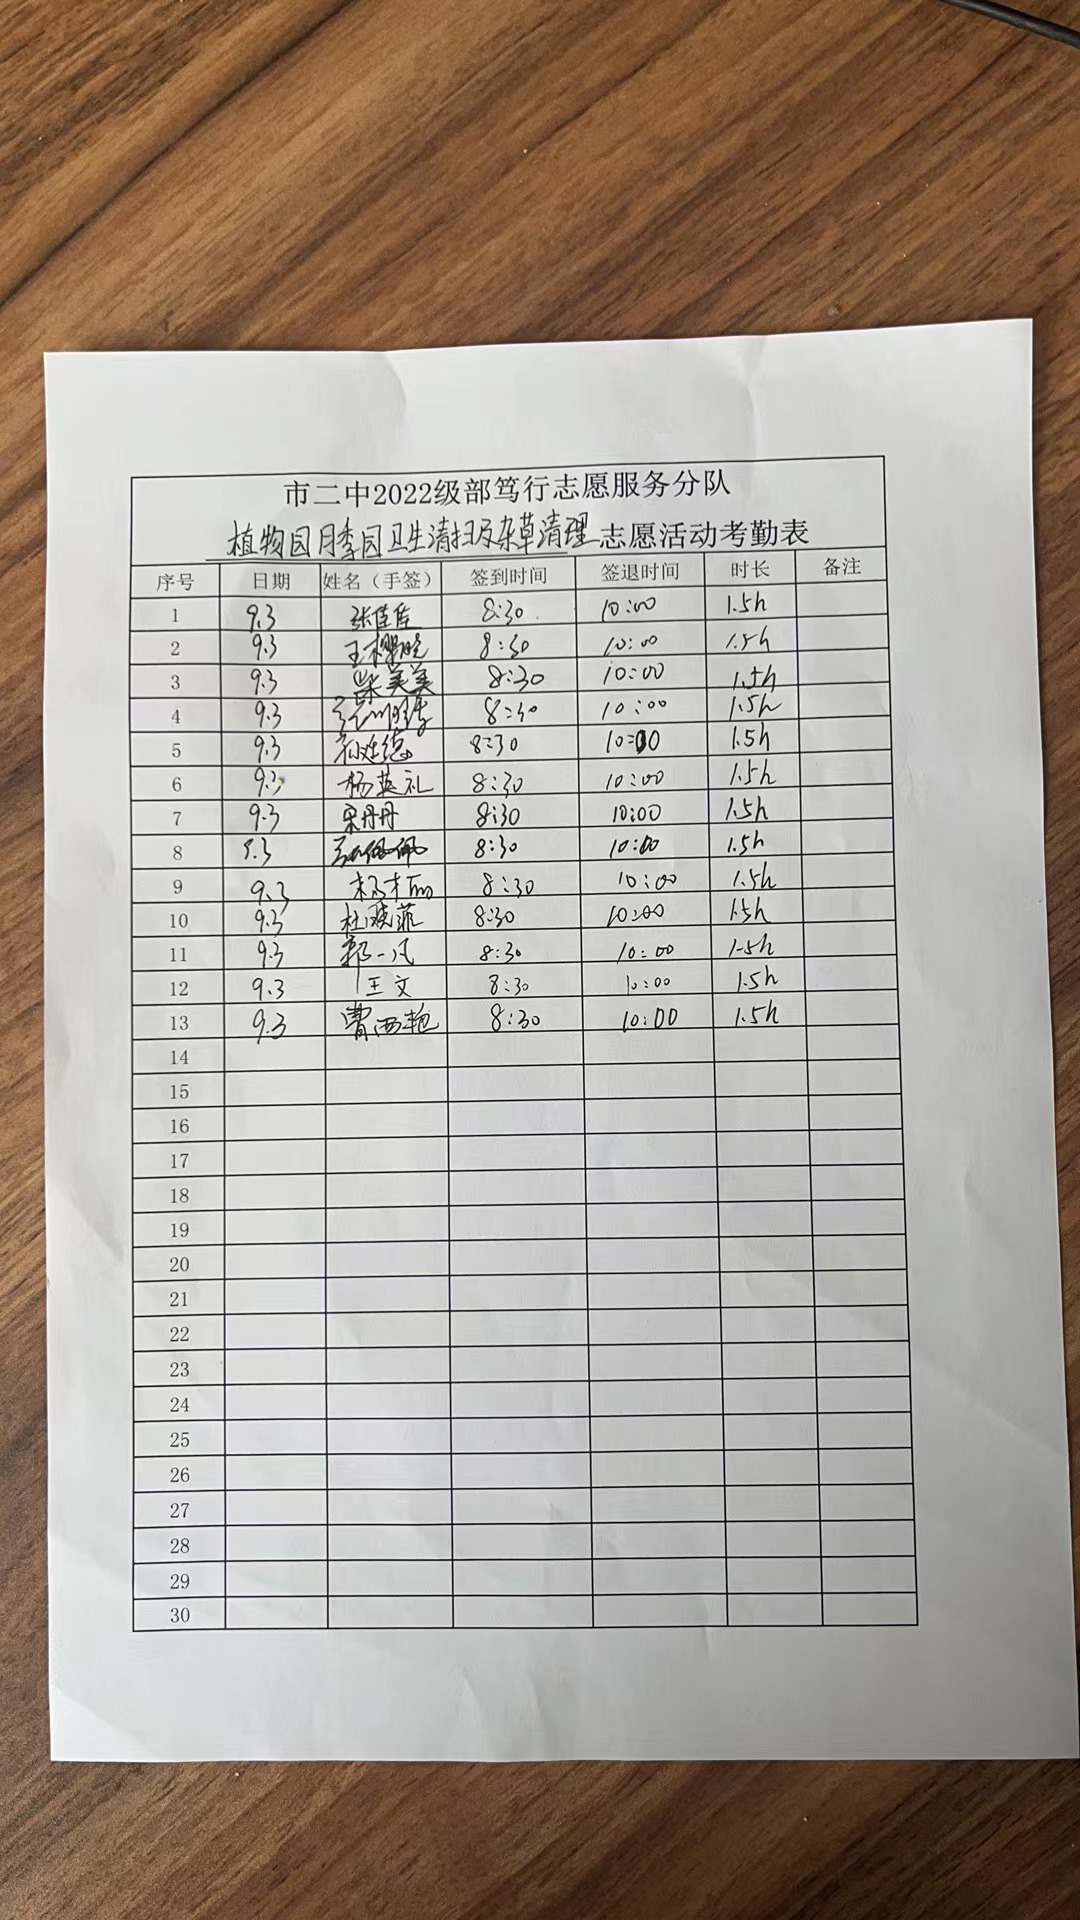 市二中2022级部笃行志愿服务分队
植物园月季园卫生清扫及杂草清理志愿活动考勤表
序号 日期 姓名（手签） 签到时间 签退时间 时长 备注
1 9.3 张佳佳 8:30 10:00 1.5h
2 9.3 王樱晓 8:30 10:00 1.5h
3 9.3 柴美美 8:30 10:00 1.5h
4 9.3 8:30 10:00 1.5h
5 9.3 8:30 10:00 1.5h
6 9.3 杨英礼 8:30 10:00 1.5h
7 9.3 宋丹丹 8:30 10:00 1.5h
8 9.3 8:30 10:00 1.5h
9 9.3 8:30 10:00 1.5h
10 9.3 杜晓菲 8:30 10:00 1.5h
11 9.3 郭一凡 8:30 10:00 1.5h
12 9.3 王文 8:30 10:00 1.5h
13 9.3 曹西艳 8:30 10:00 1.5h
14
15
16
17
18
19
20
21
22
23
24
25
26
27
28
29
30